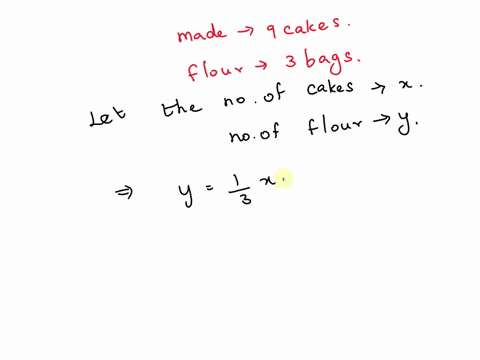 made → 9 cakes.
flour → 3 bags.
Let the no. of cakes → x.
no. of flour → y.
⇒ y = 1/3 x.